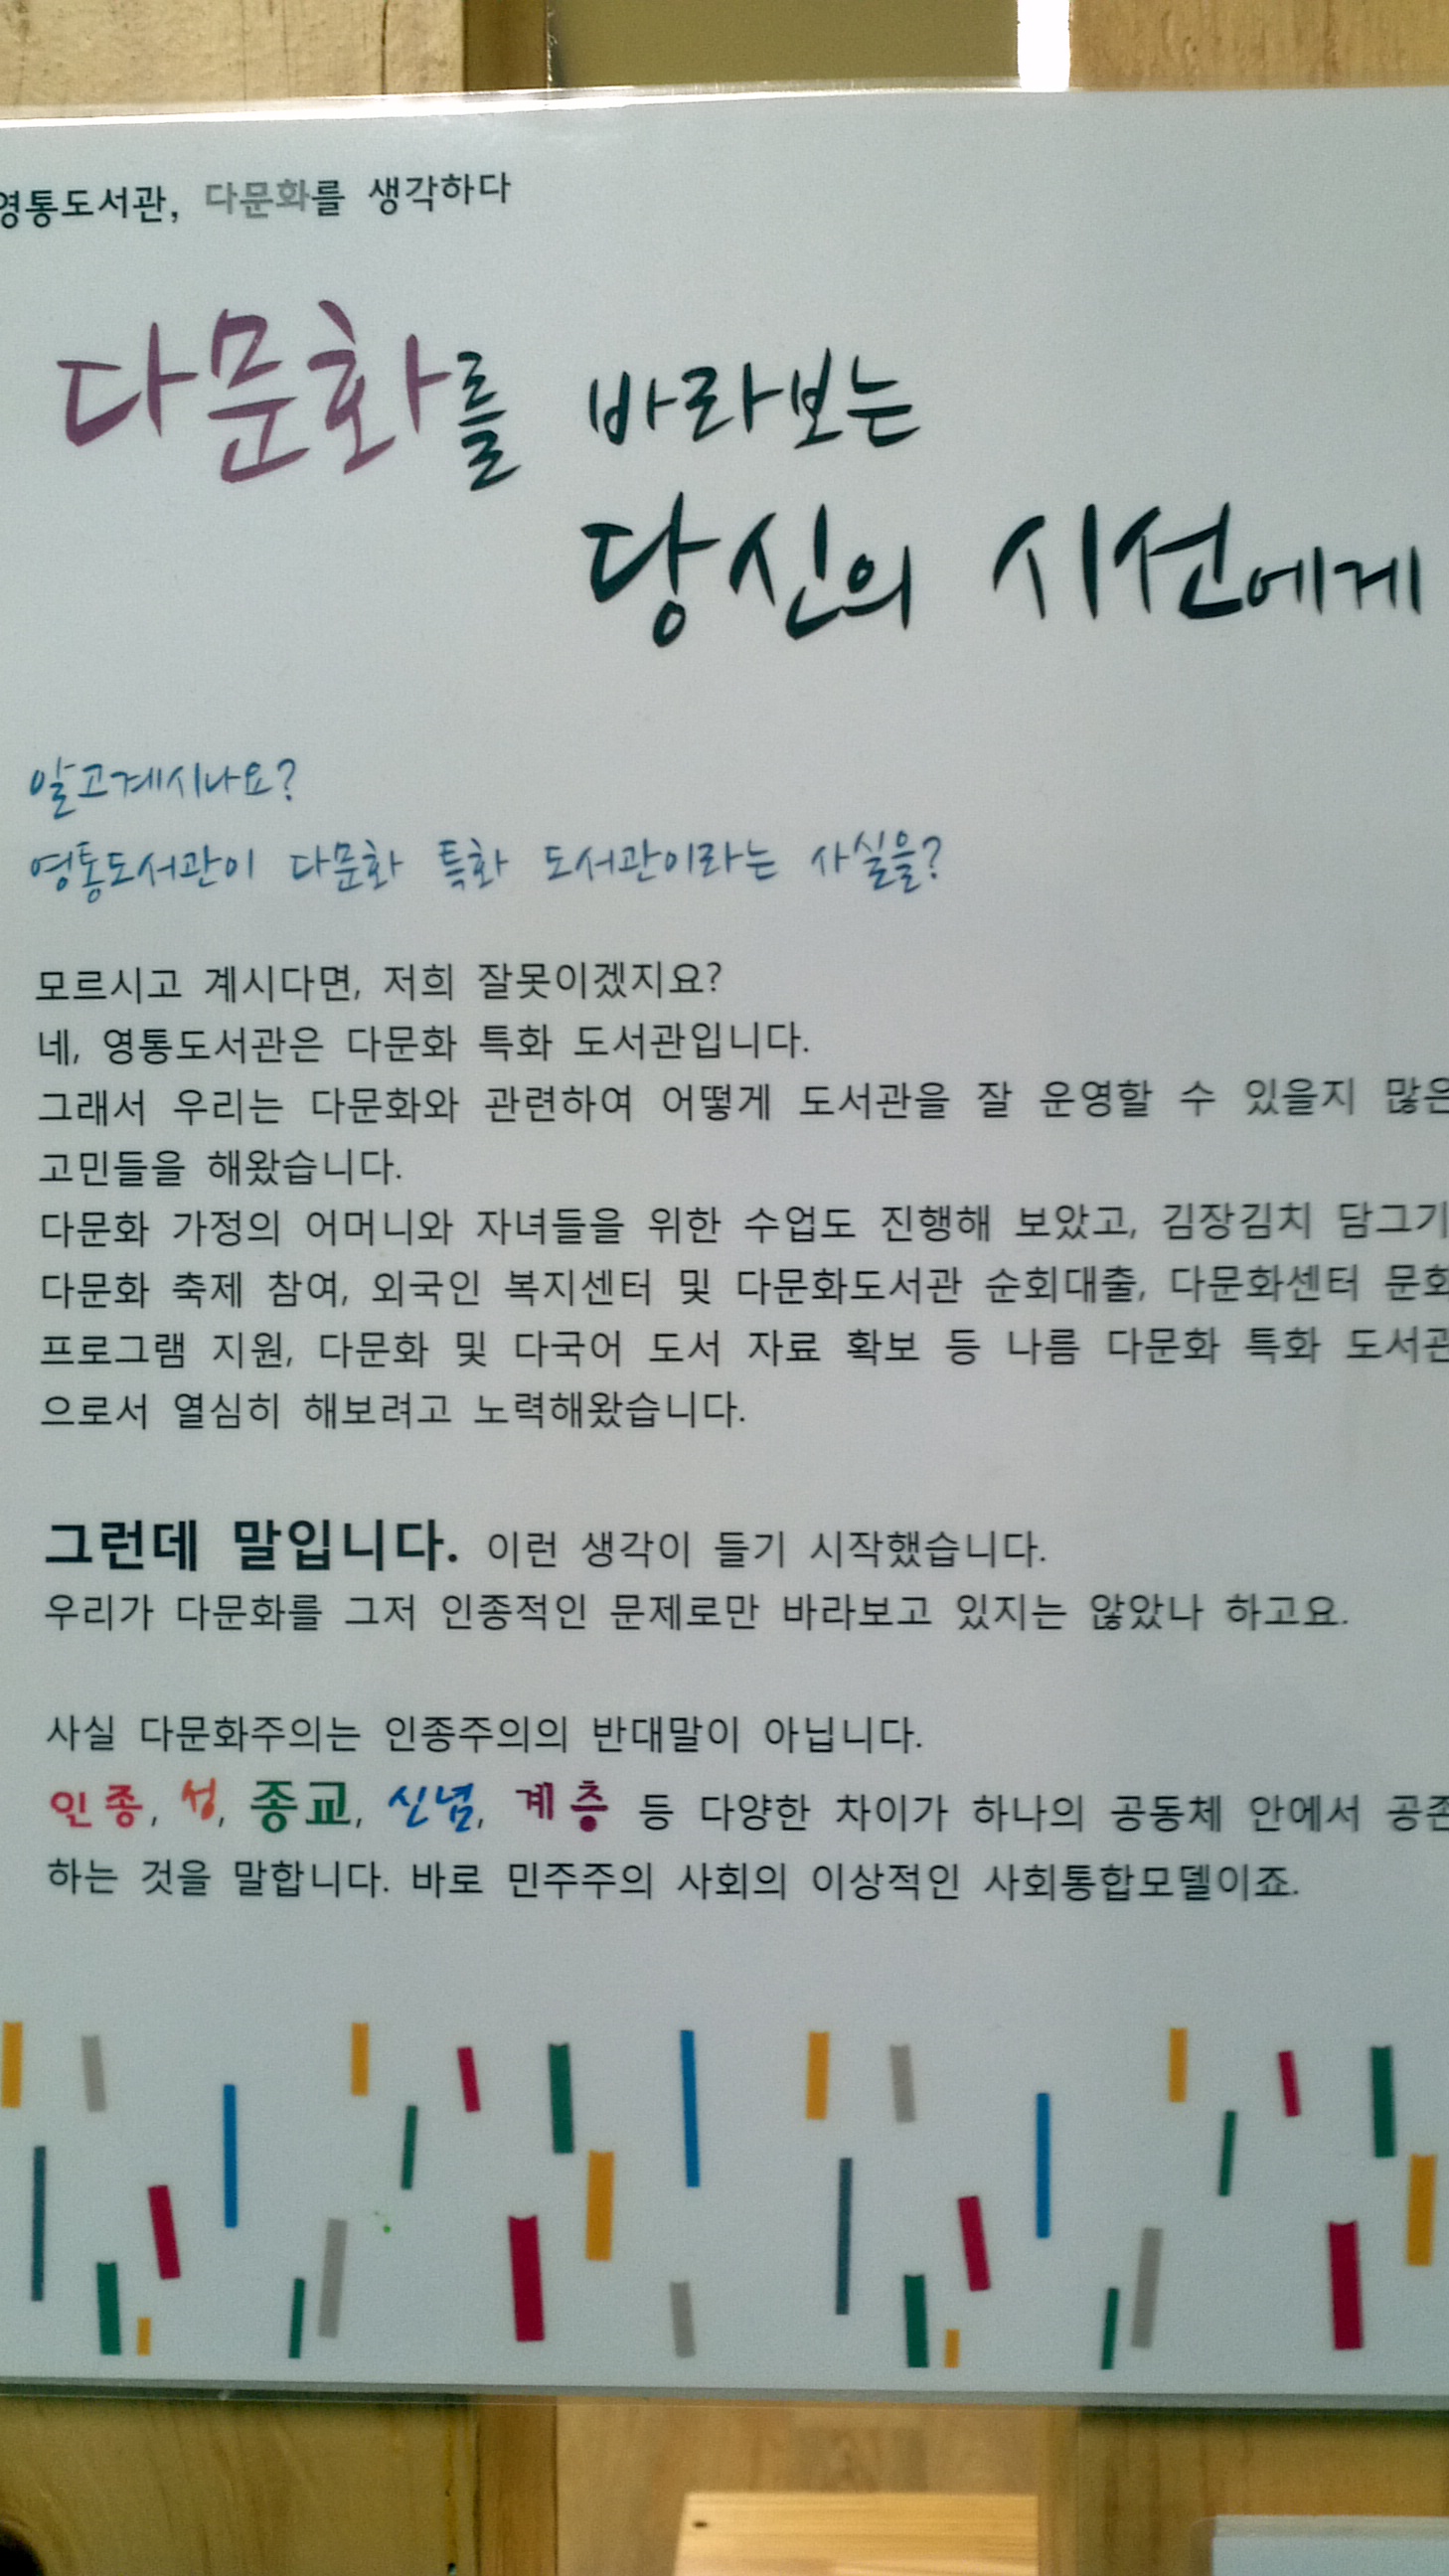 영통도서관, 다문화를 생각하다
다문화를 바라보는
당신의 시선에게
알고계시나요?
영통도서관이 다문화 특화 도서관이라는 사실을?
모르시고 계시다면, 저희 잘못이겠지요?
네, 영통도서관은 다문화 특화 도서관입니다.
그래서 우리는 다문화와 관련하여 어떻게 도서관을 잘 운영할 수 있을지 많은
고민들을 해왔습니다.
다문화 가정의 어머니와 자녀들을 위한 수업도 진행해 보았고, 김장김치 담그기
다문화 축제 참여, 외국인 복지센터 및 다문화도서관 순회대출, 다문화센터 문화
프로그램 지원, 다문화 및 다국어 도서 자료 확보 등 나름 다문화 특화 도서관
으로서 열심히 해보려고 노력해왔습니다.
그런데 말입니다. 이런 생각이 들기 시작했습니다.
우리가 다문화를 그저 인종적인 문제로만 바라보고 있지는 않았나 하고요.
사실 다문화주의는 인종주의의 반대말이 아닙니다.
인종, 성, 종교, 신념, 계층 등 다양한 차이가 하나의 공동체 안에서 공존
하는 것을 말합니다. 바로 민주주의 사회의 이상적인 사회통합모델이죠.